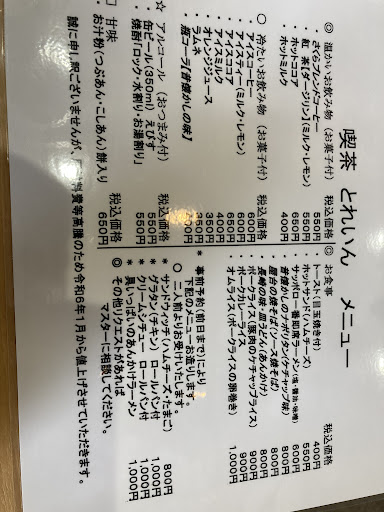 喫茶 とれいん メニュー
◎ 温かいお飲み物 (お菓子付) 税込価格
・さくらブレンドコーヒー 550円
・紅 茶【ダージリン】(ミルク・レモン) 550円
・ホットココア 600円
・ホットミルク 400円
○ 冷たいお飲み物 (お菓子付) 税込価格
・アイスコーヒー 600円
・アイスティー(ミルク・レモン) 600円
・アイスココア 650円
・アイスミルク 400円
・オレンジジュース 350円
・瓶コーラ【昔懐かしの味】
☆ アルコール (おつまみ付) 税込価格
・缶ビール(350ml) えびす 550円
・焼酎「ロック・水割り・お湯割り」 550円
□ 甘味 税込価格
・お汁粉(つぶあん・こしあん)餅入り 650円
◎ お食事 税込価格
・トースト(目玉焼き付) 400円
・ホットサンド(ハムチーズ) 550円
・サッポロ一番 ラーメン(塩・醤油・味噌) 600円
・昔懐かしのナポリタン(ケチャップ味) 800円
・屋台の焼そば(ソース焼そば) 800円
・長崎の味 皿うどん(あんかけ) 800円
・ポークライス(豚肉のケチャップライス) 900円
・ポークカレーライス 900円
・オムライス(ポークライスの卵巻き) 1,000円
* 事前予約(前日まで)により
下記のメニューお造りします。
○ 二人前よりお受けいたします。
* サンドウィッチ(ハムチーズ・たまご) 800円
* グラタン(チキン) ロールパン付 1,000円
* クリームシチュー ロールパン付 1,000円
* 具いっぱいのあんかけラーメン 1,000円
その他リクエストがあれば
マスターに相談してください。
誠に申し訳ございませんが、 費等高騰のため令和6年1月から値上げさせていただきます。